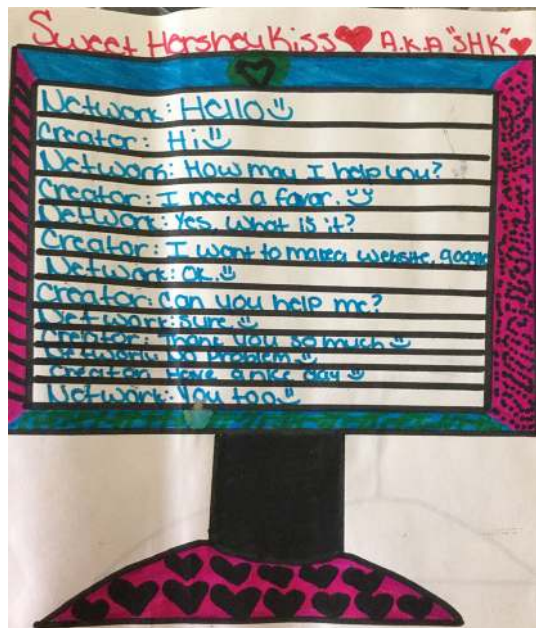 Sweet Hershey Kiss A.K.A "SHK"
Network: Hello
Creator: Hi
Network: How may I help you?
Creator: I need a favor.
Network: Yes, what is it?
Creator: I want to make a website.
Network: OK.
Creator: Can you help me?
Network: Sure.
Creator: Thank you so much
Network: No problem.
Creator: Have a nice day
Network: You too